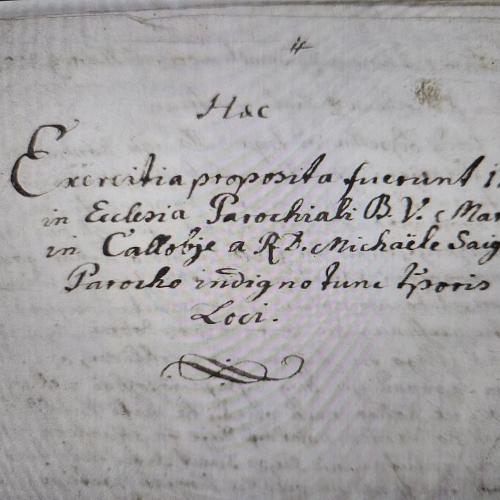 Hac
Exercitia proposita fuerunt 1
in Ecclesia Parochiali B. V. Mar
in Callobje a R D. Michaële Saig
Parocho indigno tunc tporis
Loci.